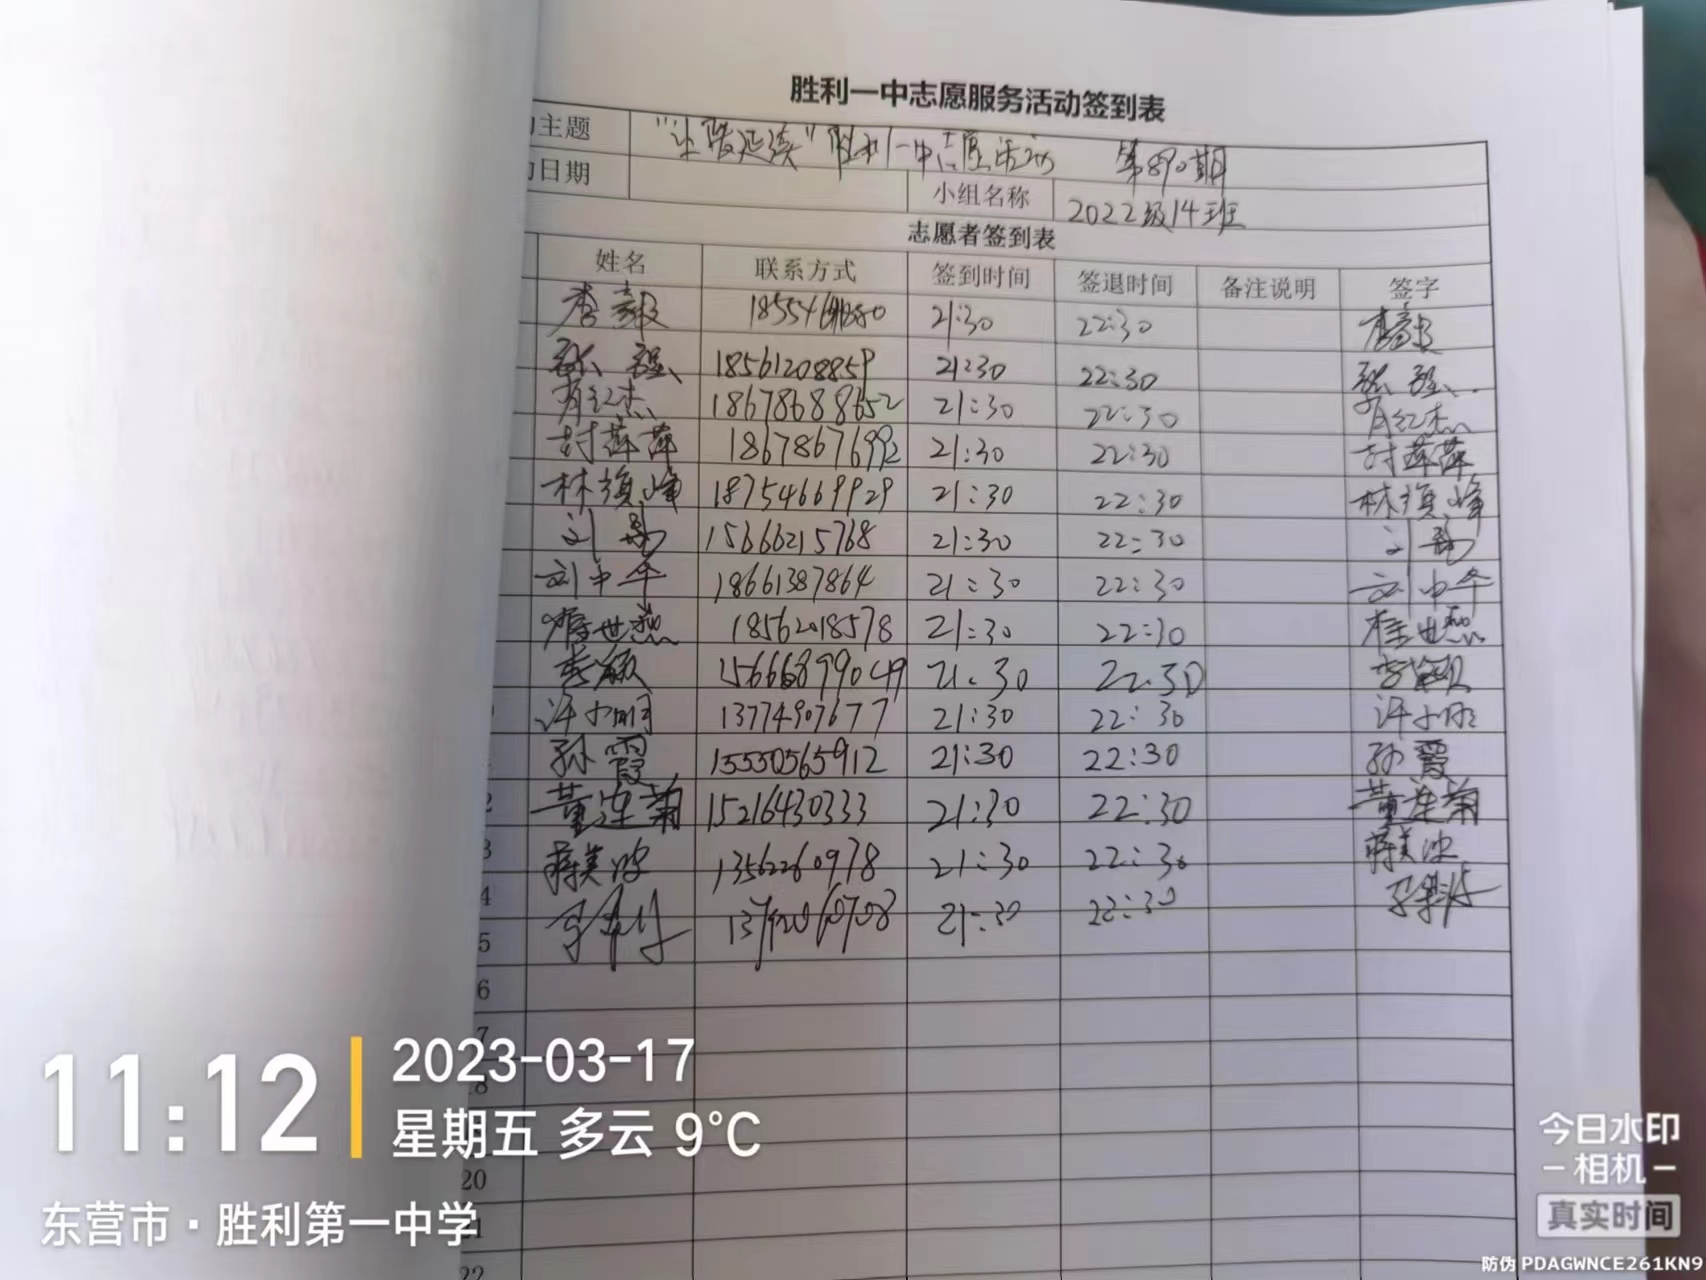 胜利一中志愿服务活动签到表
主题 "让爱延续"胜利一中志愿活动 第890期
日期 小组名称 2022级14班
志愿者签到表
姓名 联系方式 签到时间 签退时间 备注说明 签字
李 21:30 22:30 李
张强 18561208859 21:30 22:30 张强
18678688652 21:30 22:30
封萍萍 18678676992 21:30 22:30 封萍萍
林须峰 18754669929 21:30 22:30 林须峰
刘勇 15666215768 21:30 22:30 刘勇
刘中华 18661387864 21:30 22:30 刘中华
世燕 18562018578 21:30 22:30 世燕
李颖 15666899049 21:30 22:30 李颖
许小明 13774907677 21:30 22:30 许小明
孙霞 15550565912 21:30 22:30 孙霞
2 董连菊 15216430333 21:30 22:30 董连菊
3 蒋美波 13562260978 21:30 22:30 蒋美波
4 21:30 22:30
5
6
7
8
20
22
11:12
2023-03-17
星期五 多云 9℃
东营市·胜利第一中学
今日水印
-相机-
真实时间
防伪 PDAGWNCE261KN9